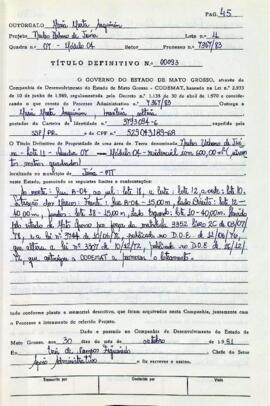 PAG. 45
OUTORGADO Maria Marta
Projeto Núcleo Urbano de Juína Lote n.º 11
Quadra n.º 07 - Módulo 04 Setor Processo n.º 7367/83
TÍTULO DEFINITIVO N.º 00093
O GOVERNO DO ESTADO DE MATO GROSSO, através da
Companhia de Desenvolvimento do Estado de Mato Grosso - CODEMAT, baseado na Lei n.º 2.933
de 10 de junho de 1969, regulamentada pelo Decreto n.º 1.138 de 30 de abril de 1970 e conside-
rando o que consta do Processo Administrativo n.º 7367/83 Outorga a
Maria Marta brasileira, solteira
portador da Carteira de Identidade n.º 3973094-6 expedida por
SSP/PR e do CPF n.º 523043189-68
o Título Definitivo de Propriedade de uma área de Terra denominada Núcleo Urbano de Juí
na - lote 11 - Quadra 07 - Módulo 04 - residencial com 600,00 m² (seiscen
tos metros quadrados)
localizada no município de Juína - MT
neste Estado, possuindo os seguintes limites e confrontações:
ao norte: Rua A-04, ao sul: lote 18, a leste: lote 12, a oeste: lote 10.
Frente: Rua A-04 - 15,00 m, lado Direito: lote 12 -
40,00 m, fundos: lote 18 - 15,00 m, lado Esquerdo: lote 10 - 40,00 m.
pelo estado de Mato Grosso
a lei nº 3744 de 10/06/76, publicada no D.O.E. de
que altera a lei nº 3307 de 10/12/72, publicada no D.O.E. de
que autoriza a CODEMAT a promover o loteamento.
tudo conforme planta e memorial descritivo, que foram arquivados nesta Companhia, juntamente com
o Processo e lançamento do referido Projeto.
Dado e passado na Companhia de Desenvolvimento do Estado de
Mato Grosso, aos 30 dias do mês de outubro de 1981
Eu, José de Campos Figueiredo Chefe do Setor
Apoio Administrativo o fiz escrever e assino.
Transcrito por Conferido por Visto